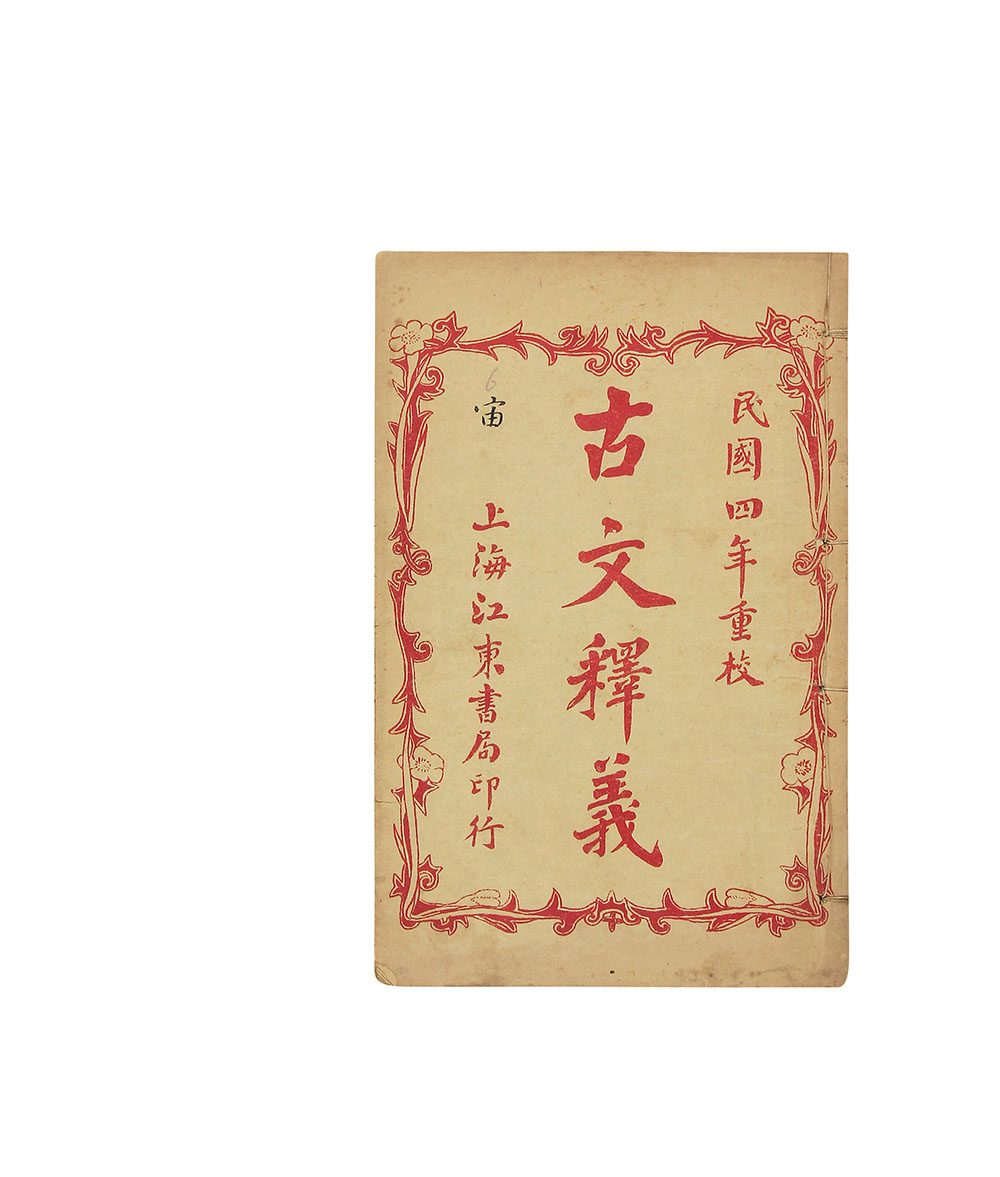 民國四年重校
古文釋義
6
宙
上海江東書局印行